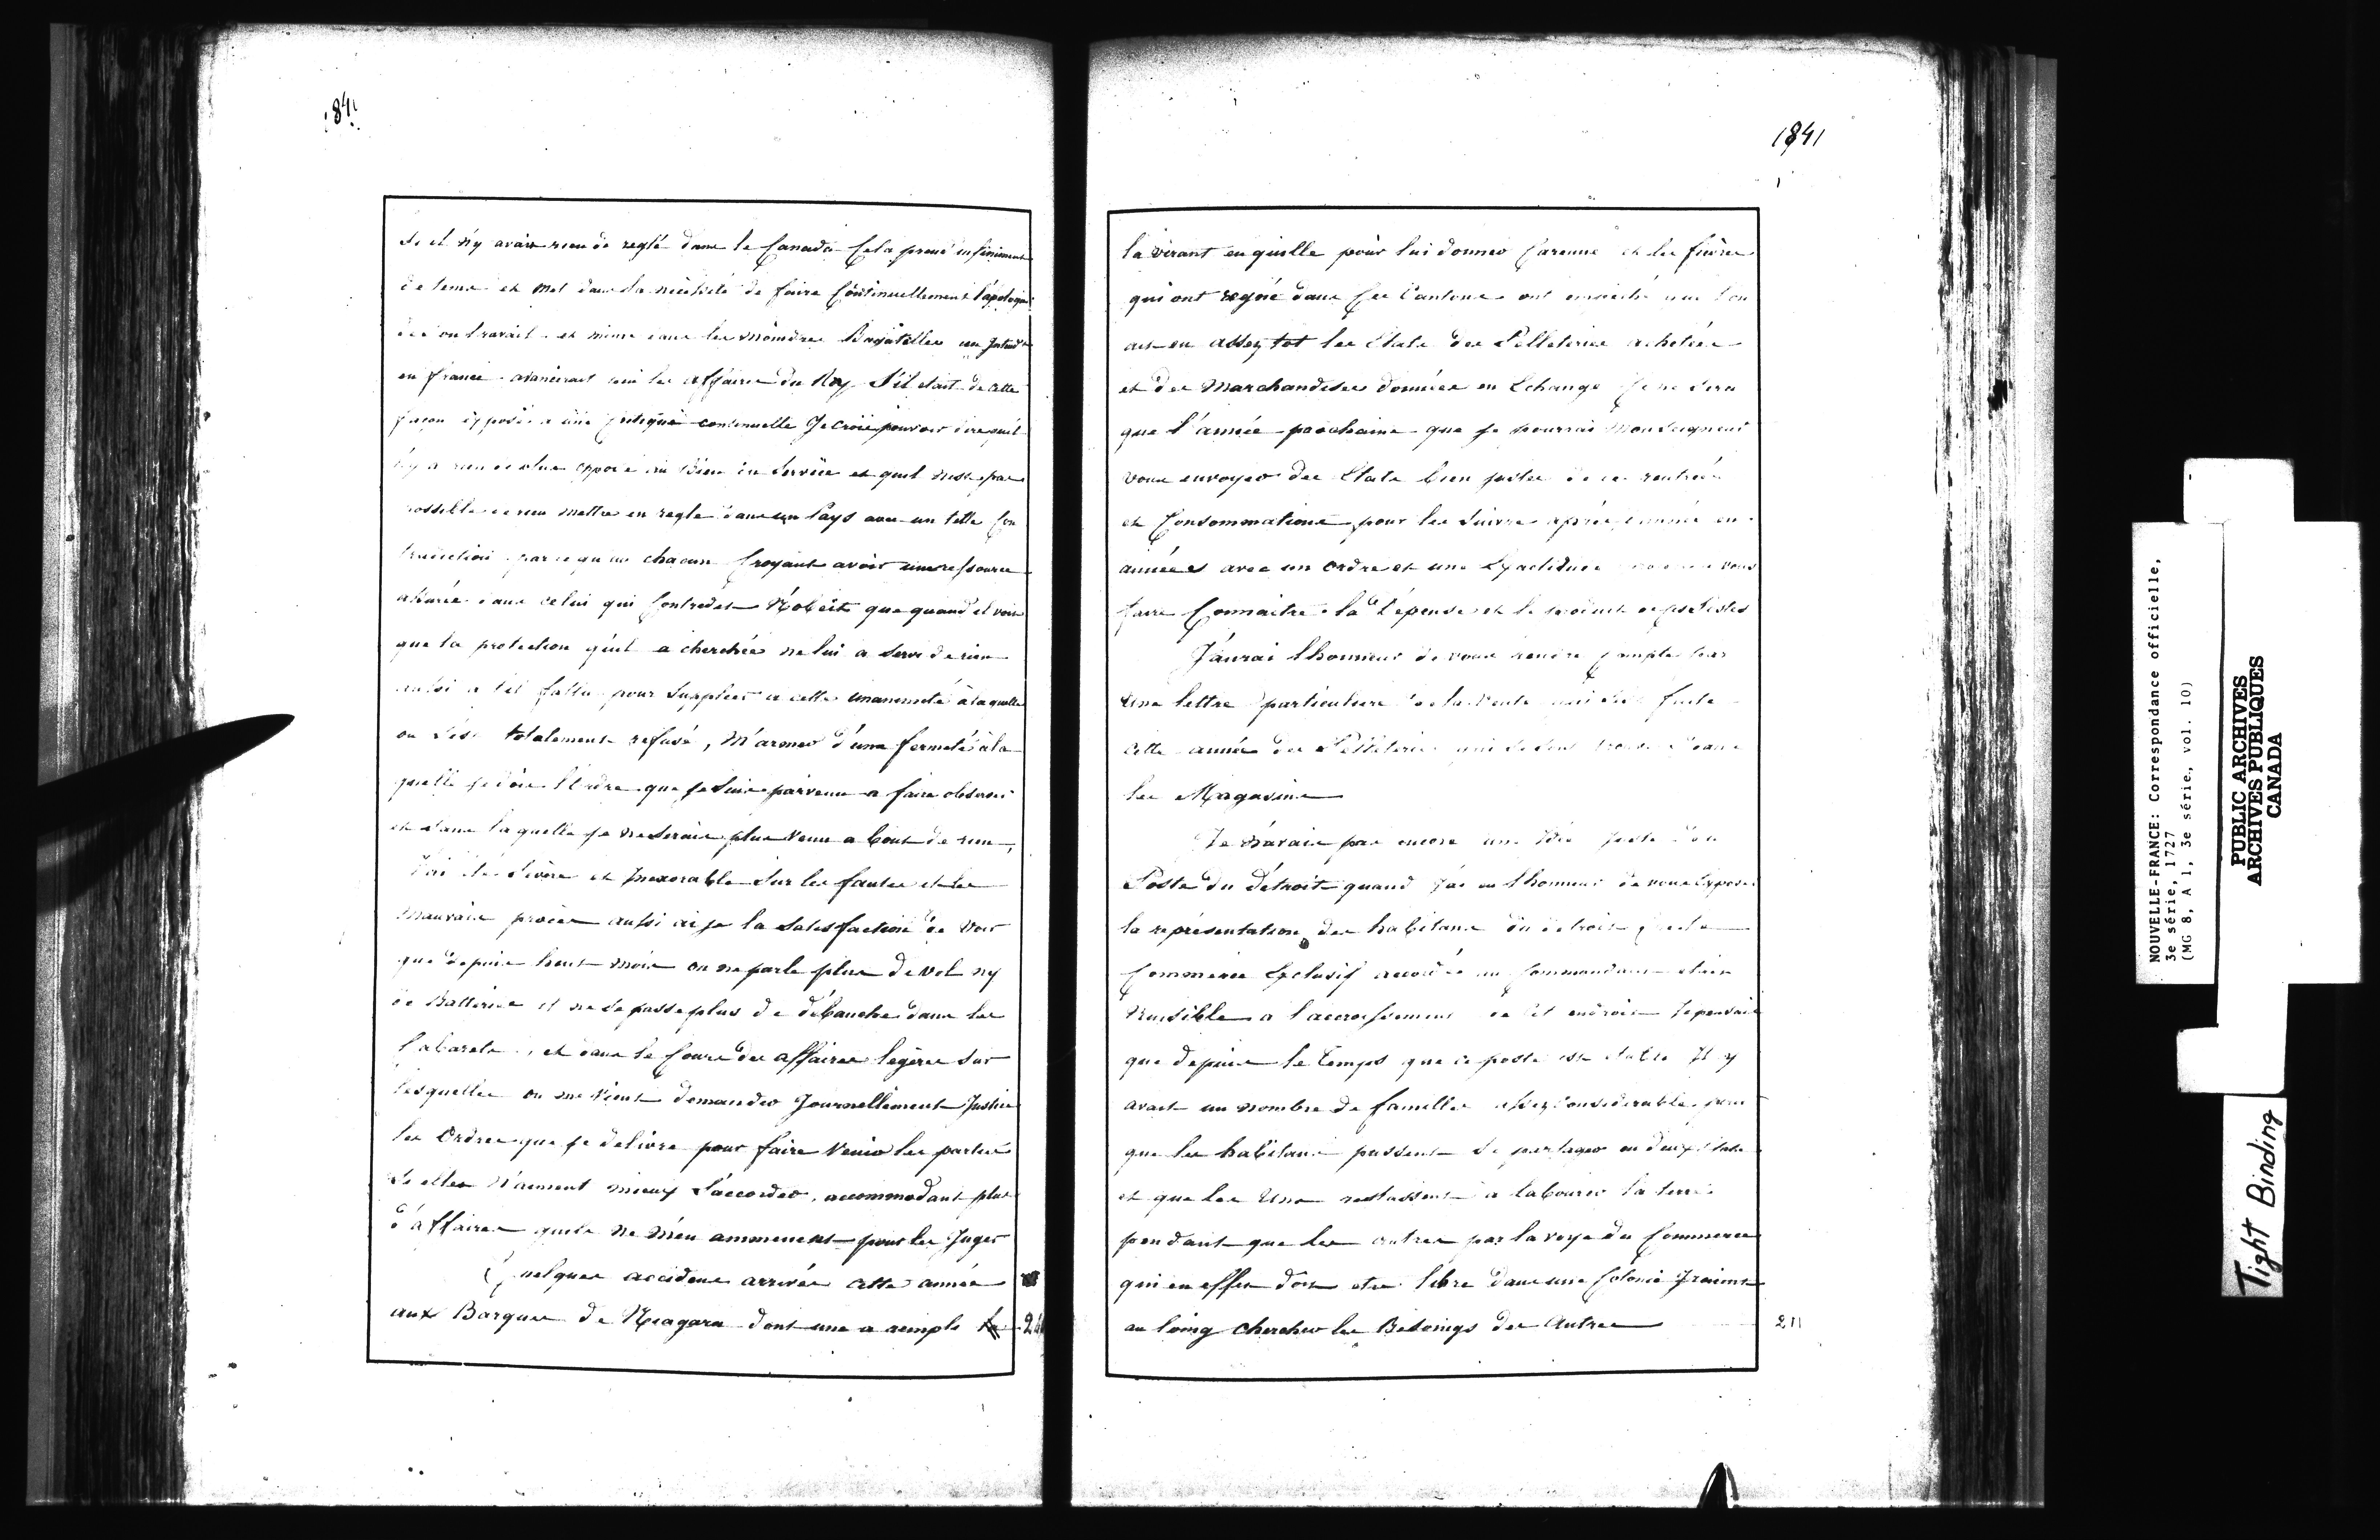 184
Si il n'y avoit rien de reglé dans le Canada Cela prend infiniment
de tems et met dans la nécéssité de faire Continuellement l'apologie
de son travail et même dans les moindres Bagatelles un Intendt
en france avancerait peu les affaires du Roy S'il étoit de cette
façon exposé a une Critique continuelle Je crois pouvoir dire qu'il
n'y a rien de plus opposé au Bien du Service et quil n'est pas
possible de rien mettre en regle dans un Pays avec un telle Con
tradiction parce qu'un chacun Croyant avoir une ressource
assurée dans celui qui Contredit N'obéit que quand il voit
que la protection qu'il a cherchée ne lui a servi de rien
aussi a t'il fallu pour Suppléer a cette unanimité à laquelle
on s'est totalement refusé, M'armer d'une fermeté à la
quelle je dois l'Ordre que je Suis parvenu a faire observer
et sans laquelle je ne serois plus venu a bout de rien,
J'ai été Sévère et Inexorable Sur les fautes et les
Mauvais procès aussi ai je la Satisfaction de voir
que depuis huit mois on ne parle plus de vol ny
de Batteries il ne se passe plus de débauche dans les
Cabarets, et dans le Cours des affaires légères Sur
lesquelles on me vient demander Journellement Justice
les Ordres que je délivre pour faire Venir les parties
Si elles n'aiment mieux S'accorder, accommodant plus
d'affaires quils ne m'en ammenent pour les Juger
Quelques accidens arrivés cette année
aux Barques de Niagara dont une a rempli
1841
la virant en quille pour lui donner Carenne et les fièvres
qui ont regné dans Ces Cantons ont empêché que l'on
ait eu assez tot les Etats des Pelleteries achetées
et des Marchandises données en Echange Ce ne sera
que l'année prochaine que je pourrai Monseigneur
vous envoyer des Etats bien justes de ces rentrées
et Consommations pour les Suivre après d'année en
années avec un ordre et une Exactitude vous
faire Connoitre la Dépense et le produit de ces Postes
J'aurai l'honneur de vous rendre Compte par
Une lettre particuliere de la Vente qui s'est faite
cette année des Pelleteries qui se sont trouvé dans
les Magasins
Je n'avais pas encore une Idée juste du
Poste du Détroit quand j'ai eu l'honneur de vous Exposer
la représentation des habitans du détroit
Commerce Exclusif accordé au Commandant étoit
Nuisible a l'accroissement de Cet endroit Je pensais
que depuis le temps que ce poste est établi Il y
avoit un nombre de familles assez Considerable pour
que les habitans pussent Se partager en deux états
et que les Uns restassent a labourer la terre
pendant que les autres par la voye du Commerce
qui en effet doit etre libre dans une Colonie Iraient
au loing chercher les Besoings des Autres
211
NOUVELLE-FRANCE: Correspondance officielle,
3e série, 1727
(MG 8, A 1, 3e série, vol. 10)
PUBLIC ARCHIVES
ARCHIVES PUBLIQUES
CANADA
Tight Binding